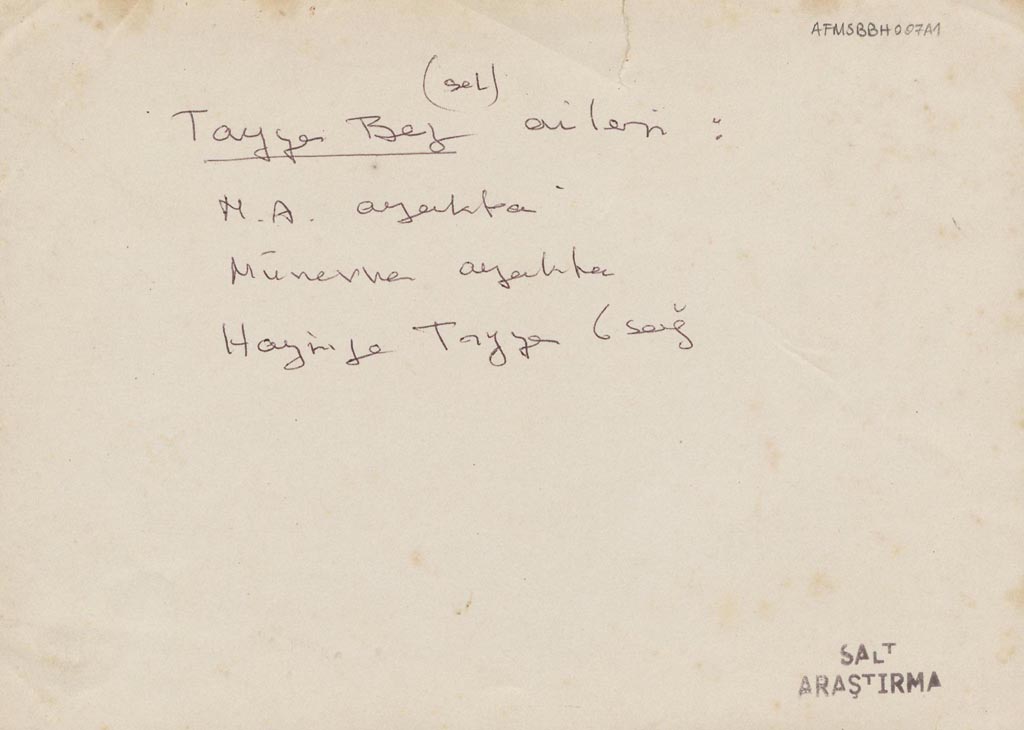 AFMSBBH007A1
(sol)
Tayya Bey ailesi :
M.A. ayakta
Münevver ayakta
Tayya (sağ
SALT
ARAŞTIRMA